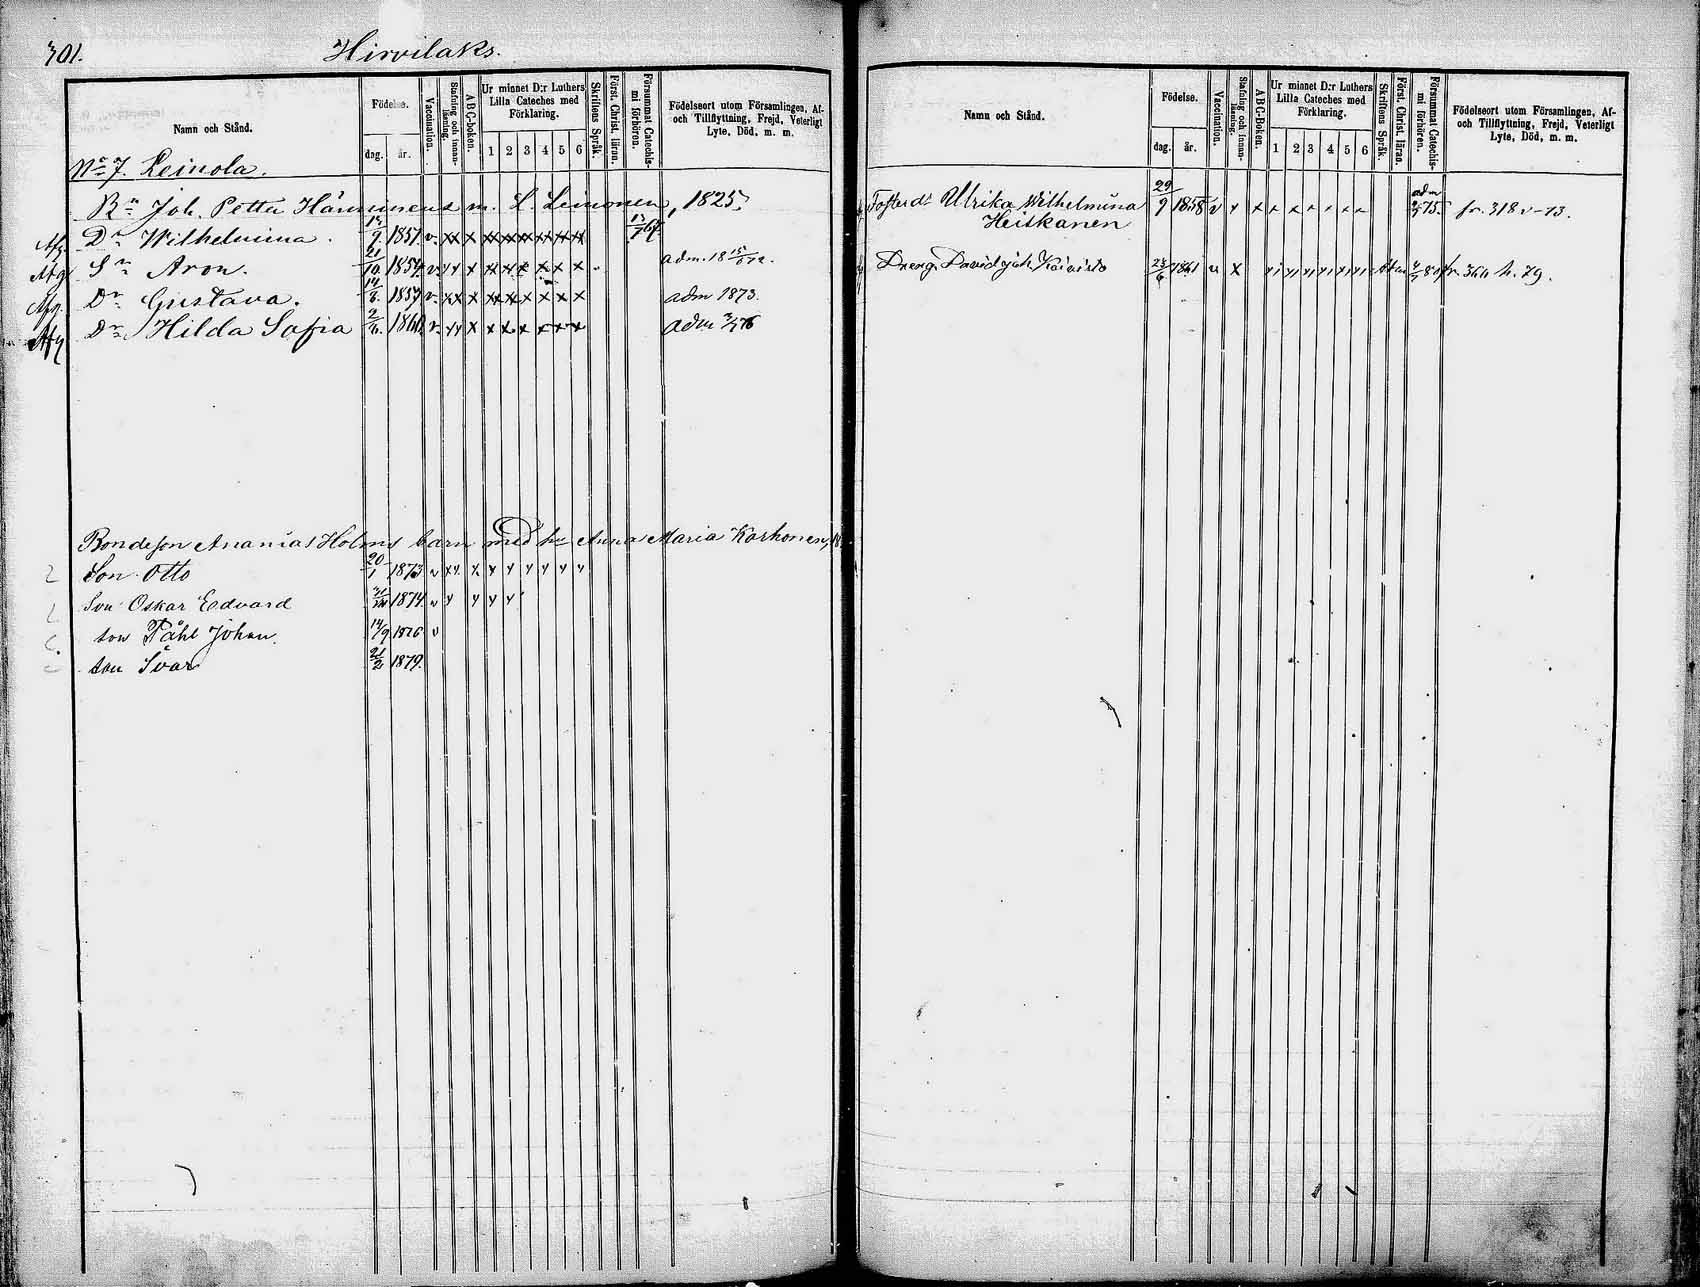 301.
Hirvilaks.
Namn och Stånd.
Födelse.
dag. år.
Vaccination.
Stafning och innanläsning.
ABC-boken.
Ur minnet D:r Luthers Lilla Cateches med Förklaring.
1 2 3 4 5 6
Skriftens Språk.
Först. Christ. läran.
Försummat Catechismi förhören.
Födelseort utom Församlingen, Af- och Tillflyttning, Frejd, Veterligt Lyte, Död, m. m.
No 7. Leinola.
Bn Joh. Pettu Hänninens m. L. Leinonen, 1825,
Afg. Dr Wilhelmina. 1851. v. xx x xx xx xx xx xx xx
Afg Sn Aron. 21/10 1854. v. x x x xx xx x x x x adm. 18
Afg. Dr Gustava. 14/8. 1857 v. xx x xx xx x x x x adm 1873.
Afg Dr Hilda Sofia 2/6. 1860. v. x x x x x x x x x adm 3/7 76
Bondeson Ananias Holms barn med hu Anna Maria Korhonen, 18
Son Otto 20/1 1873 v x x x x x x x x x
Son Oskar Edvard 1874. v x x x x
son Påhl Johan. 14/9 1876 v
son Ivar 21/2 1879.
Namn och Stånd.
Födelse.
dag. år.
Vaccination.
Stafning och innanläsning.
ABC-Boken.
Ur minnet D:r Luthers Lilla Cateches med Förklaring.
1 2 3 4 5 6
Skriftens Språk.
Först. Christ. läran.
Försummat Catechismi förhören.
Födelseort utom Församlingen, Af- och Tillflyttning, Frejd, Veterligt Lyte, Död, m. m.
Fosterdr Ulrika Wilhelmina 29/9 1858 v x x x x x x x x adm 75. fr. 318 v-73.
Heiskanen
Dreng. David Joh. Koivisto 23/6 1861 v x fr. 364 h. 79.